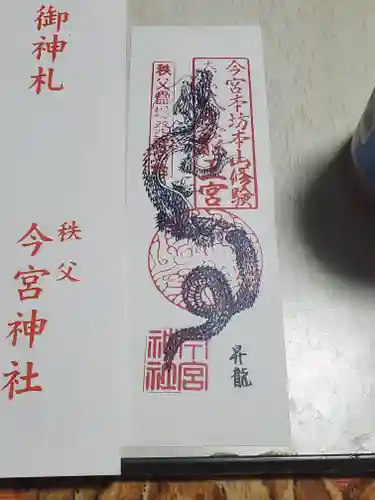 御神札
秩父
今宮神社
今宮本坊本山修験
秩父霊場発祥
昇龍
今宮
神社